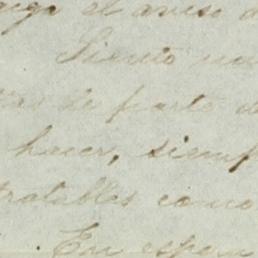 el aviso
Siento
de parte
hacer, siemp
tratables como
En espera